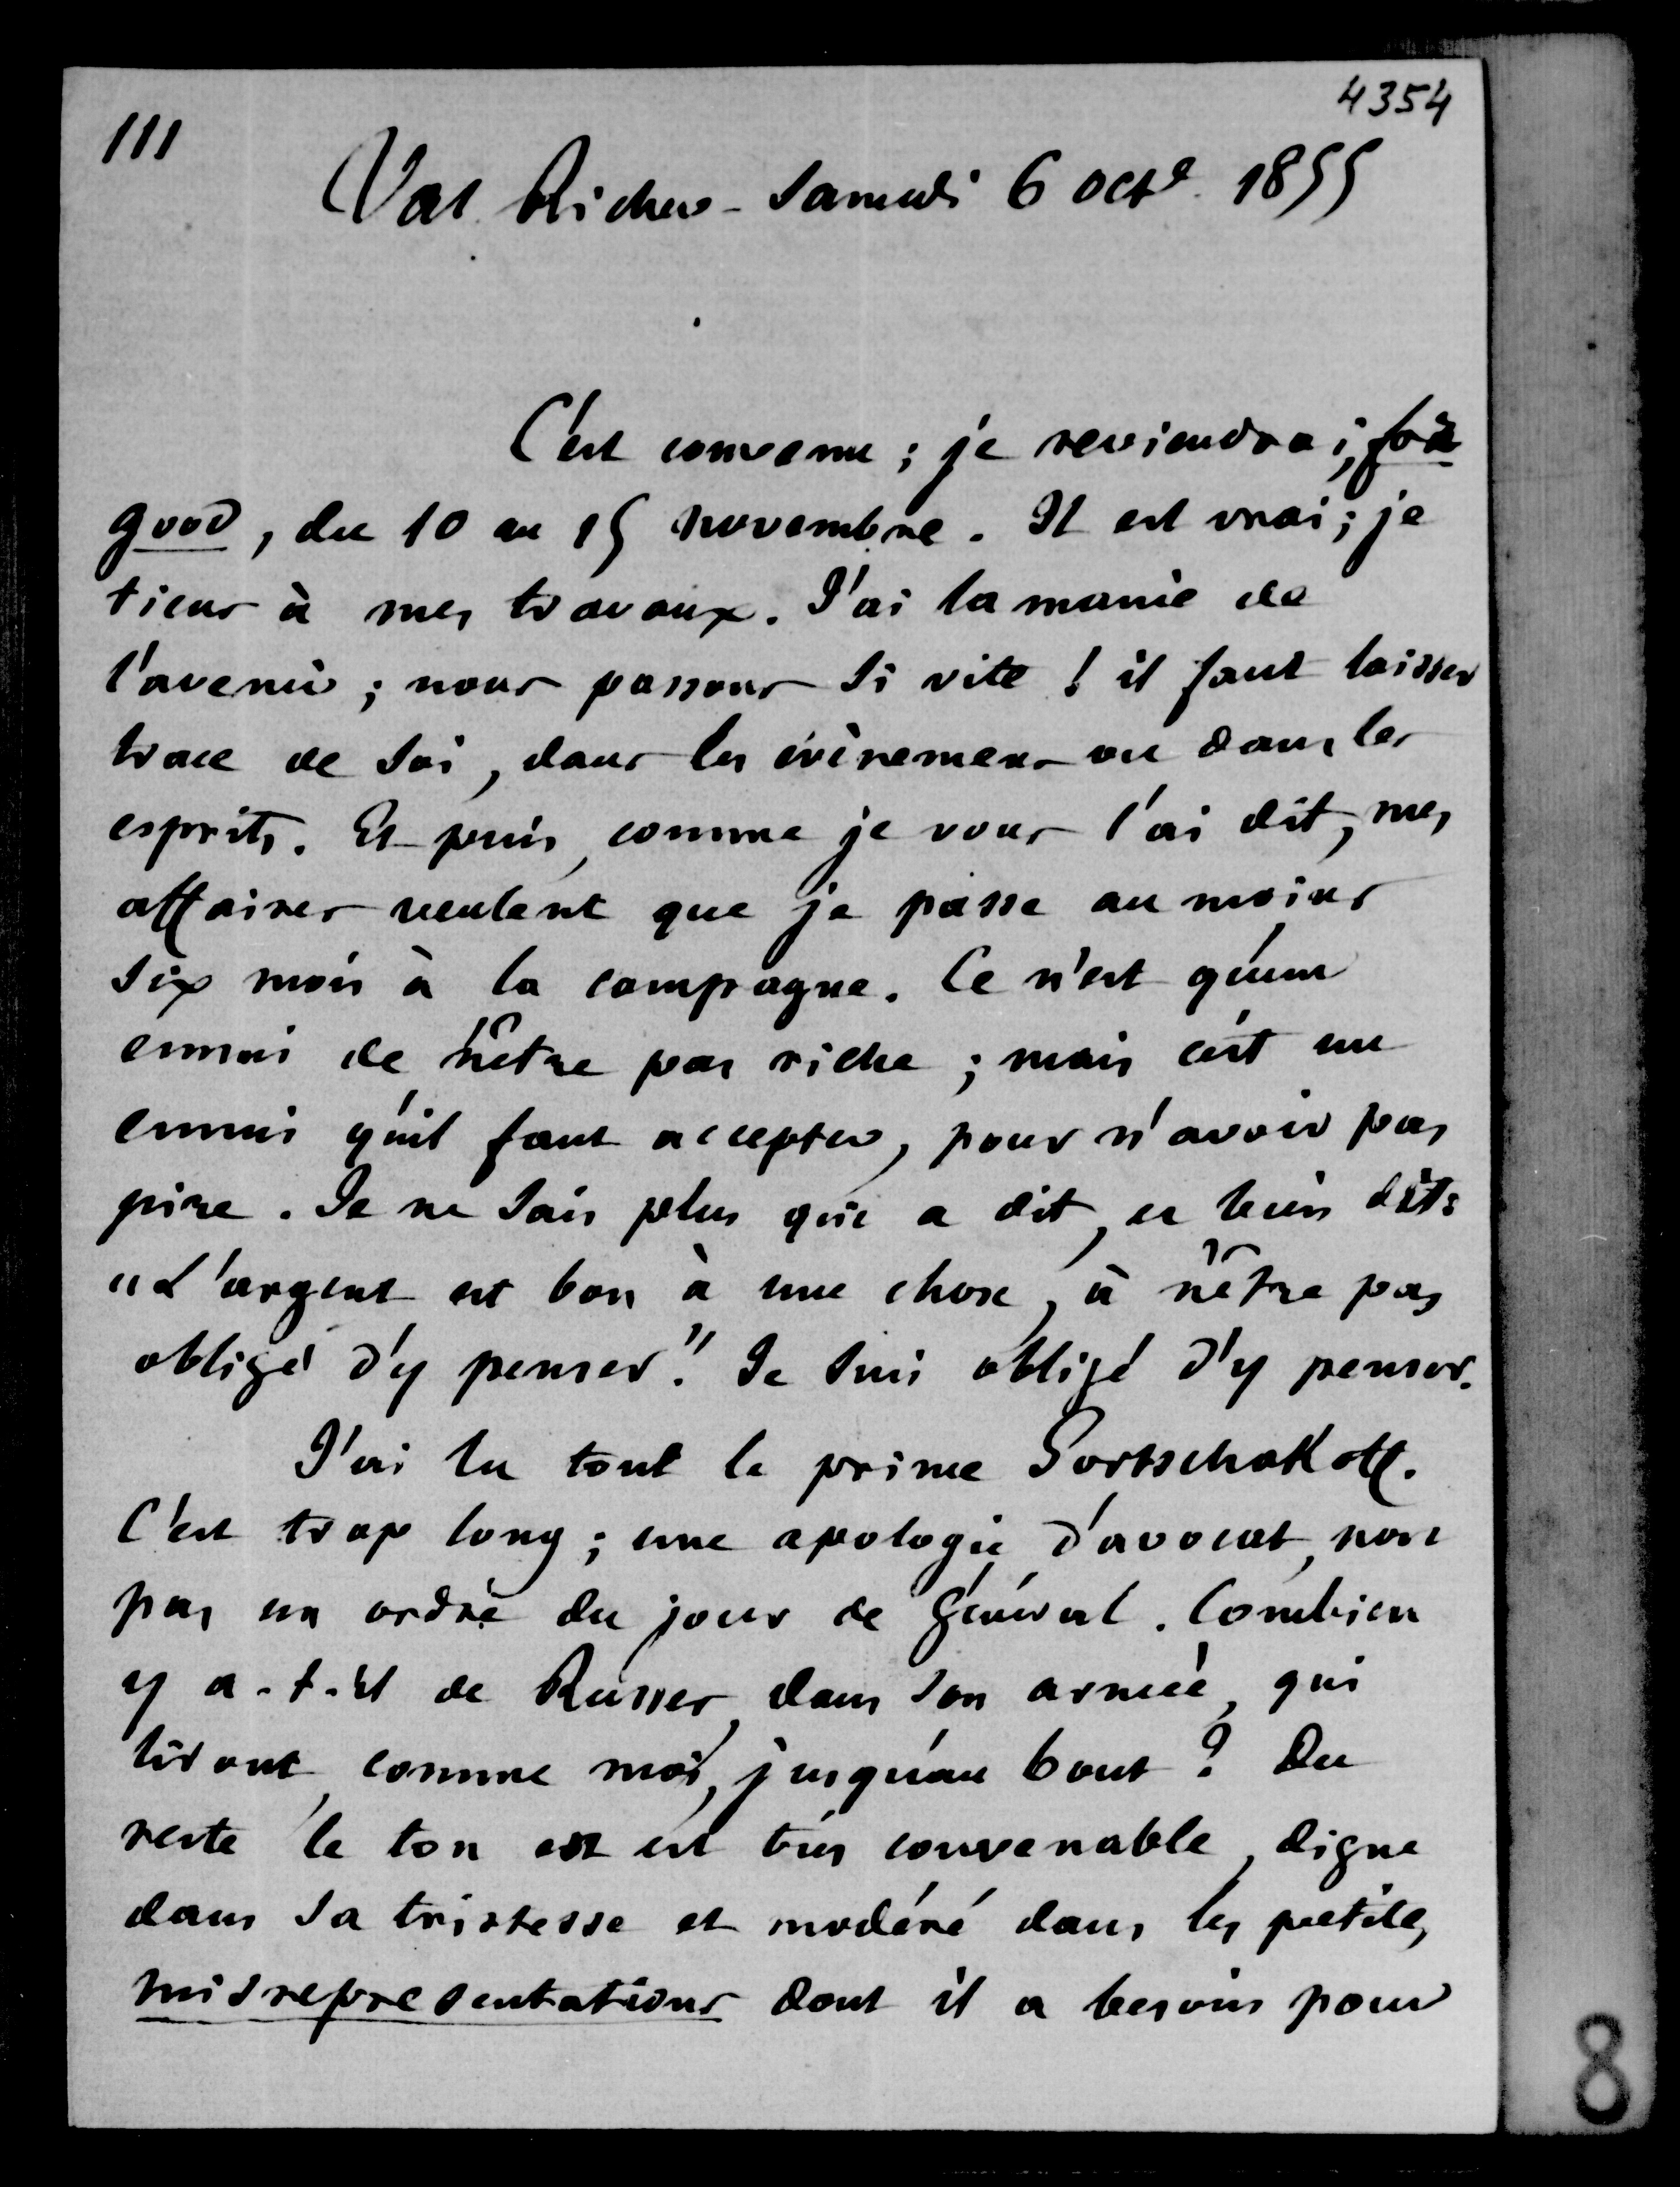 4354
111
Val Richer - Samedi 6 Octe 1855
C'est convenu ; je reviendrai, for
good, du 10 au 15 novembre. Il est vrai ; je
tiens à mes travaux. J'ai la manie de
l'avenir ; nous passons si vite ! il faut laisser
trace de soi, dans les évènemens ou dans les
esprits. Et puis, comme je vous l'ai dit, mes
affaires veulent que je passe au moins
six mois à la campagne. Ce n'est qu'un
ennui de n'être pas riche ; mais c'est un
ennui qu'il faut accepter, pour n'avoir pas
pire. Je ne sais plus qui a dit, et bien dit :
"L'argent est bon à une chose, à n'être pas
obligé d'y penser". Je suis obligé d'y penser.
J'ai lu tout le prince Gortschakoff.
C'est trop long ; une apologie d'avocat, non
pas un ordre du jour de Général. Combien
y a-t-il de Russes, dans son armée, qui
liront, comme moi, jusqu'au bout ? Du
reste le ton est est très convenable, digne
dans sa tristesse et modéré dans les petites
misrepresentations dont il a besoin pour
8